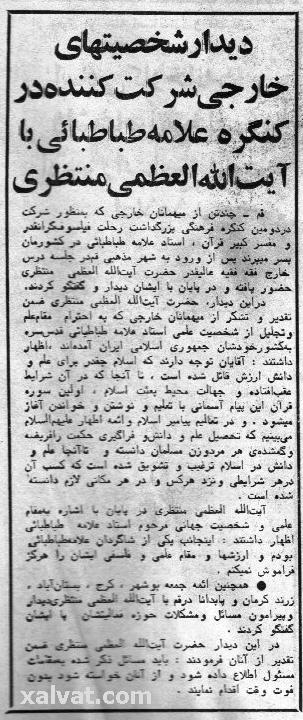 دیدار شخصیتهای
خارجی شرکت کننده در
کنگره علامه طباطبائی با
آیت‌الله‌العظمی منتظری
قم ــ چندتن از میهمانان خارجی که بمنظور شرکت
دردومین کنگره فرهنگی بزرگداشت رحلت فیلسوفگرانقدر
و مفسر کبیر قرآن ، استاد علامه طباطبائی در کشورمان
بسر میبرند پس از ورود به شهر مذهبی قم در جلسه درس
خارج فقه فقیه عالیقدر حضرت آیت‌الله العظمی منتظری
حضور یافته و در پایان با ایشان دیدار و گفتگو کردند.
در این دیدار حضرت آیت‌الله العظمی منتظری ضمن
تقدیر و تشکر از میهمانان خارجی که به احترام مقام‌علم
وتجلیل از شخصیت علمی استاد علامه طباطبائی قدس‌سره
به‌کشورخودشان جمهوری اسلامی ایران آمده‌اند ،اظهار
داشتند : آقایان توجه دارند که اسلام چقدر برای علم و
دانش ارزش قائل شده است ، تا آنجا که در آن شرایط
عقب‌افتاده و جهالت محیط بعثت اسلام ، اولین سوره
قرآن این پیام آسمانی با تعلیم و نوشتن و خواندن آغاز
میشود . و در تعالیم پیامبر اسلام وائمه اطهار علیهم‌السلام
می‌بینیم که تحصیل علم و دانش‌و فراگیری حکمت رافریضه
وگمشده‌ی هر مردوزن مسلمان دانسته و تاآنجا علم و
دانش در اسلام ترغیب و تشویق شده است‌که کسب آن
درهر شرایطی و نزد هرکس و در هر مکانی لازم دانسته
شده است .
آیت‌الله العظمی منتظری در پایان با اشاره به‌مقام
علمی و شخصیت جهانی مرحوم استاد علامه طباطبائی
اظهار داشتند : اینجانب یکی از شاگردان علامه‌طباطبائی
بودم و ارزشها و مقام علمی و فلسفی ایشان را هرگز
فراموش نمیکنم .
● همچنین ائمه جمعه بوشهر ، کرج ، بستان‌آباد ،
زرند کرمان و پابدانا درقم با آیت‌الله العظمی منتظری‌دیدار
وپیرامون مسائل ومشکلات حوزه فعالیتشان با ایشان
گفتگو کردند .
در این دیدار حضرت آیت‌الله العظمی منتظری ضمن
تقدیر از آنان فرمودند : باید مسائل ذکر شده به‌مقامات
مسئول اطلاع داده شود و از آنان خواسته شود بدون
فوت وقت اقدام نمایند .
xalvat.com